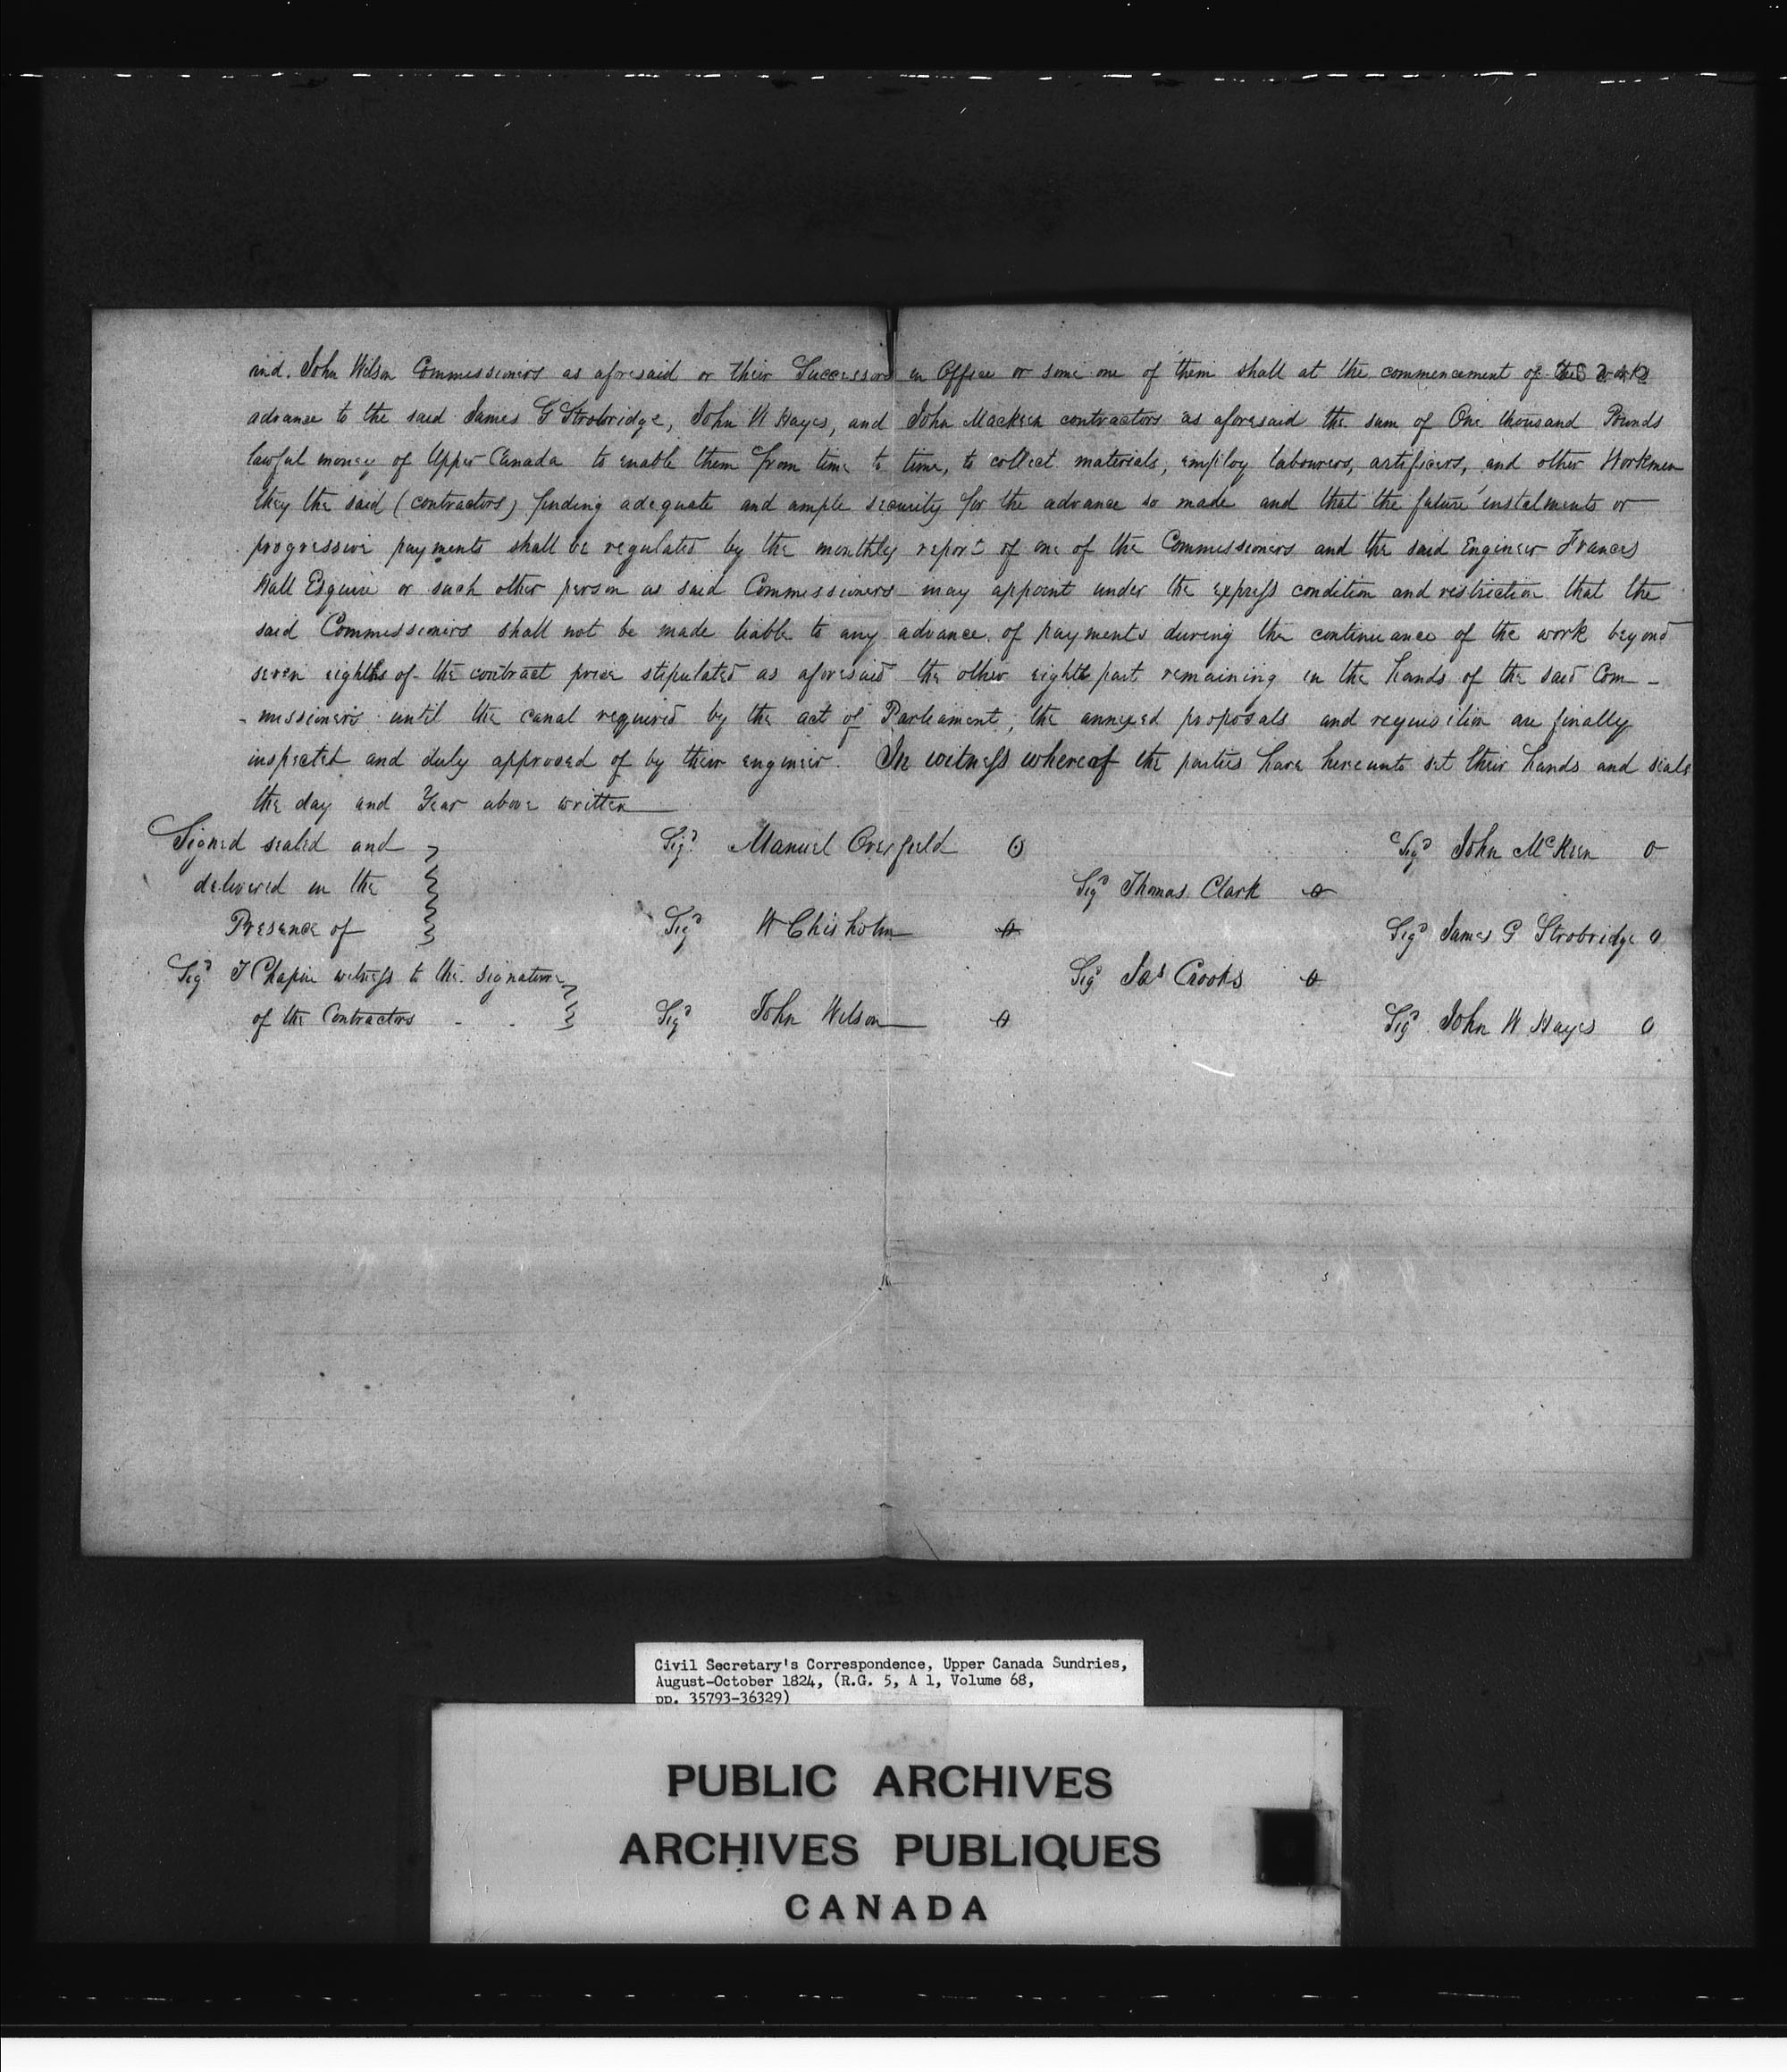 and John Wilson Commissioners as aforesaid or their Successors in Office or some one of them shall at the commencement of the
advance to the said James G Strobridge, John W Hayes, and John Mackeen contractors as aforesaid the sum of One thousand Pounds
lawful money of Upper Canada to enable them from time to time, to collect materials, employ labourers, artificers, and other Workmen
they the said (contractors) finding adequate and ample security for the advance so made and that the future instalments or
progressive payments shall be regulated by the monthly report of one of the Commissioners and the said Engineer Frances
Hall Esquire or such other person as said Commissioners may appoint under the express condition and restriction that the
said Commissioners shall not be made liable to any advance of payments during the continuance of the work beyond
seven eighths of the contract price stipulated as aforesaid the other eighth part remaining in the hands of the said Com-
-missioners until the canal required by the act of Parliament, the annexed proposals and requisition are finally
inspected and duly approved of by their engineer. In witness whereof the parties have hereunto set their hands and seals
the day and Year above written
Signed sealed and Sigd Manuel Overfield Sigd John McKeen
delivered in the Sigd Thomas Clark
Presence of Sigd W Chisholm Sigd James G Strobridge
Sigd I Chapin witness to the signature Sigd Jas Crooks
of the Contractors Sigd John Wilson Sigd John W Hayes
Civil Secretary's Correspondence, Upper Canada Sundries,
August-October 1824, (R.G. 5, A 1, Volume 68,
pp. 35793-36329)
PUBLIC ARCHIVES
ARCHIVES PUBLIQUES
CANADA